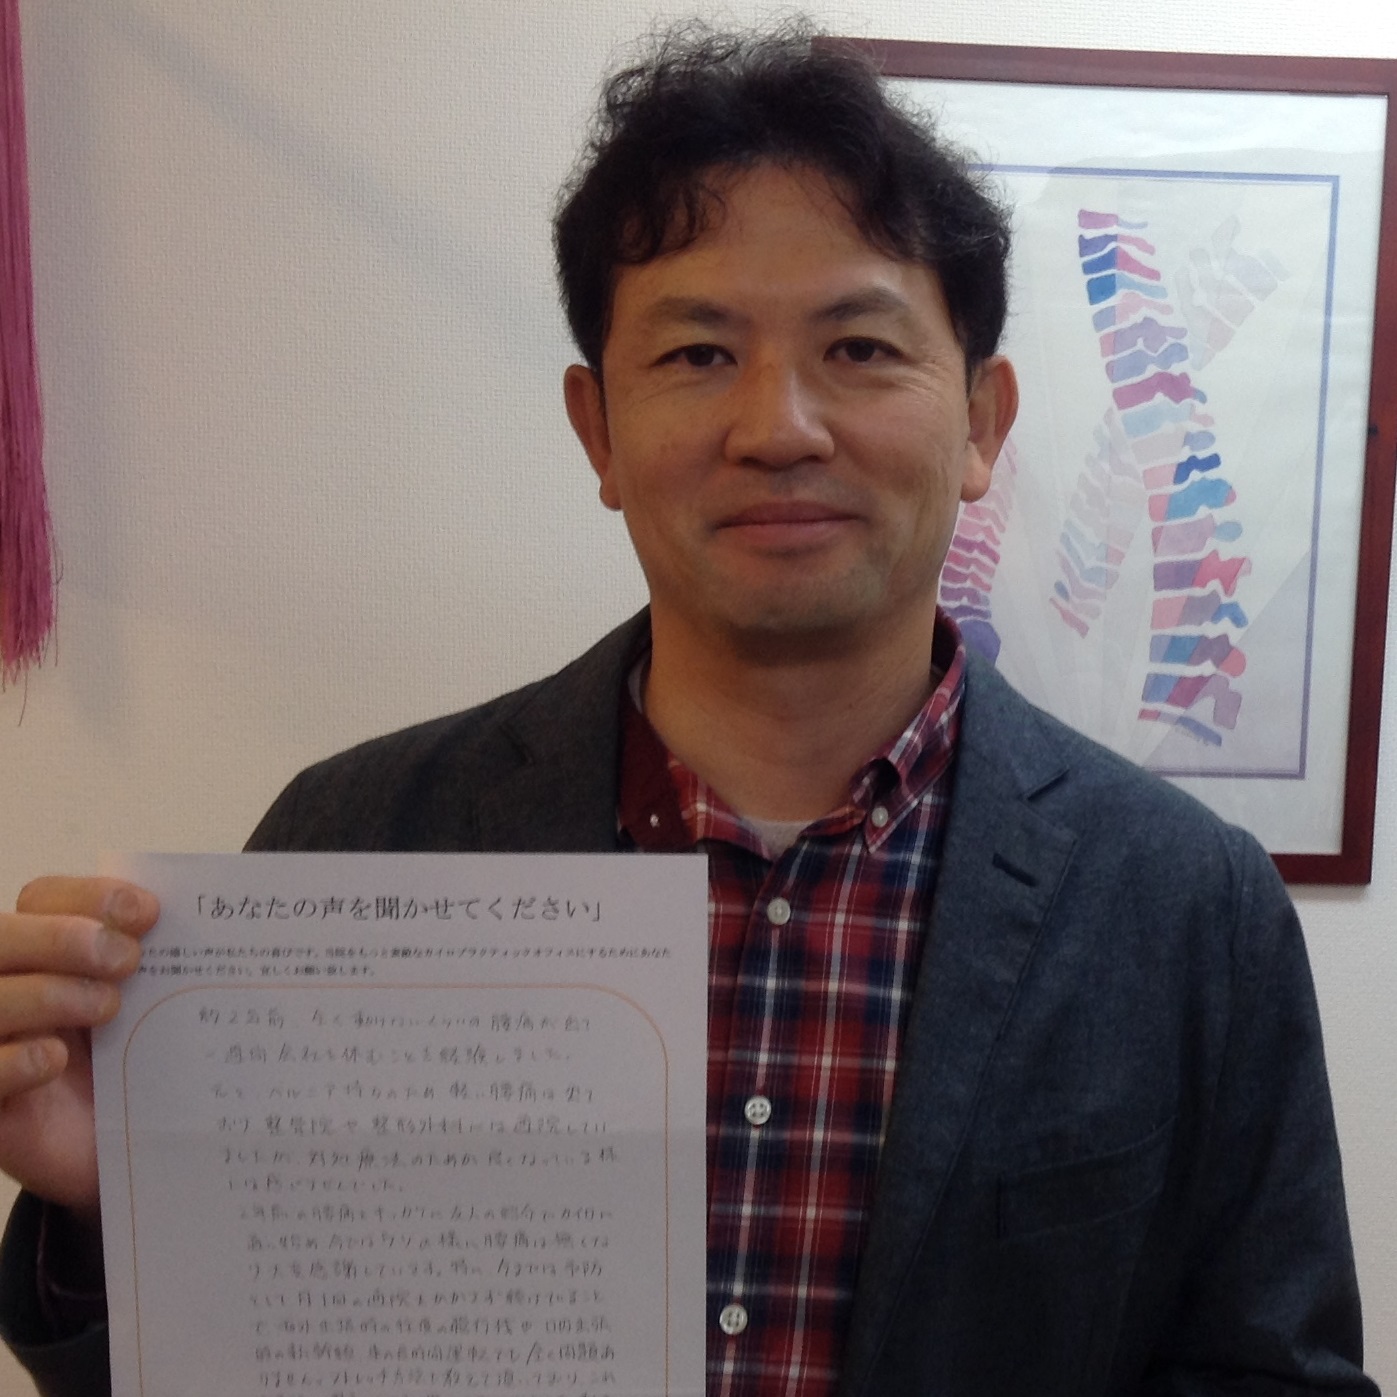 「あなたの声を聞かせてください」
たの嬉しい声が私たちの喜びです。当院をもっと素敵なカイロプラクティックオフィスにするためにあなた
声をお聞かせください。宜しくお願い致します。
約2年前、全く動けないくらいの腰痛が出て
一週間会社を休むことを経験しました。
元々、ヘルニア持ちのため軽い腰痛は出て
おり整骨院や整形外科には通院してい
ましたが、対処療法のためか良くなっている様
には感じませんでした。
2年前の腰痛をきっかけに友人の紹介でカイロに
通い始め今ではウソの様に腰痛は無くな
り大変感謝しています。特に、今までは予防
として月1回の通院をかかさず続けていること
で、海外出張時の往復の飛行機や国内出張
時の新幹線、車の長時間運転でも全く問題あ
りません。ストレッチ方法も教えて頂いており、これ